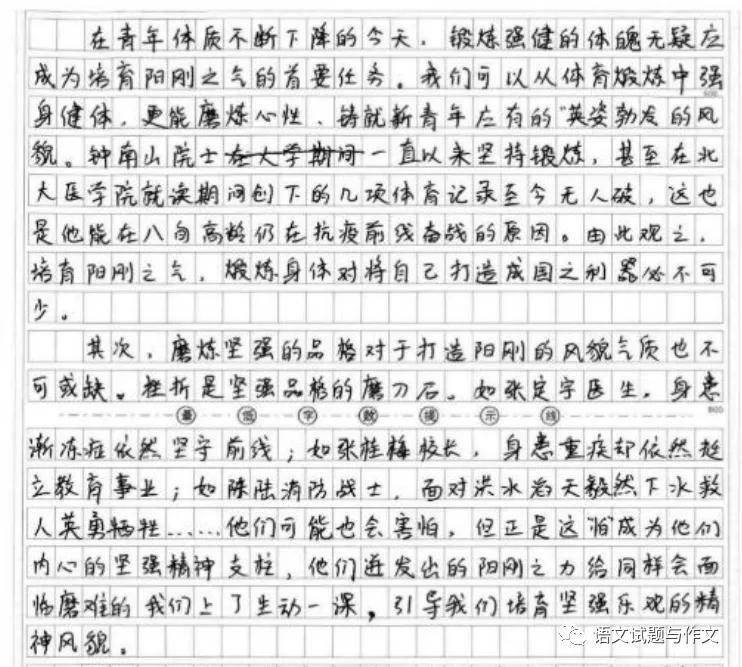 在青年体质不断下降的今天，锻炼强健的体魄无疑应
成为培育阳刚之气的首要任务。我们可以从体育煅炼中强
身健体，更能磨炼心性、铸就新青年应有的"英姿勃发的风
貌。钟南山院士在大学期间一直以来坚持锻炼，甚至在北
大医学院就读期间创下的几项体育记录至今无人破，这也
是他能在八旬高龄仍在抗疫前线奋战的原因。由此观之，
培育阳刚之气，煅炼身体对将自己打造成国之利器必不可
少。
其次，磨炼坚强的品格对于打造阳刚的风貌气质也不
可或缺。挫折是坚强品格的磨刀石。如张定宇医生，身患
800
最低字数提示线
渐冻症依然坚守前线；如张桂梅校长，身患重疾却依然挺
立教育事业；如陈陆消防战士，面对洪水滔天毅然下水救
人英勇牺牲……他们可能也会害怕，但正是这"怕"成为他们
内心的坚强精神支柱，他们迸发出的阳刚之力给同样会面
临磨难的我们上了生动一课，引导我们培育坚强乐观的精
神风貌。
语文试题与作文